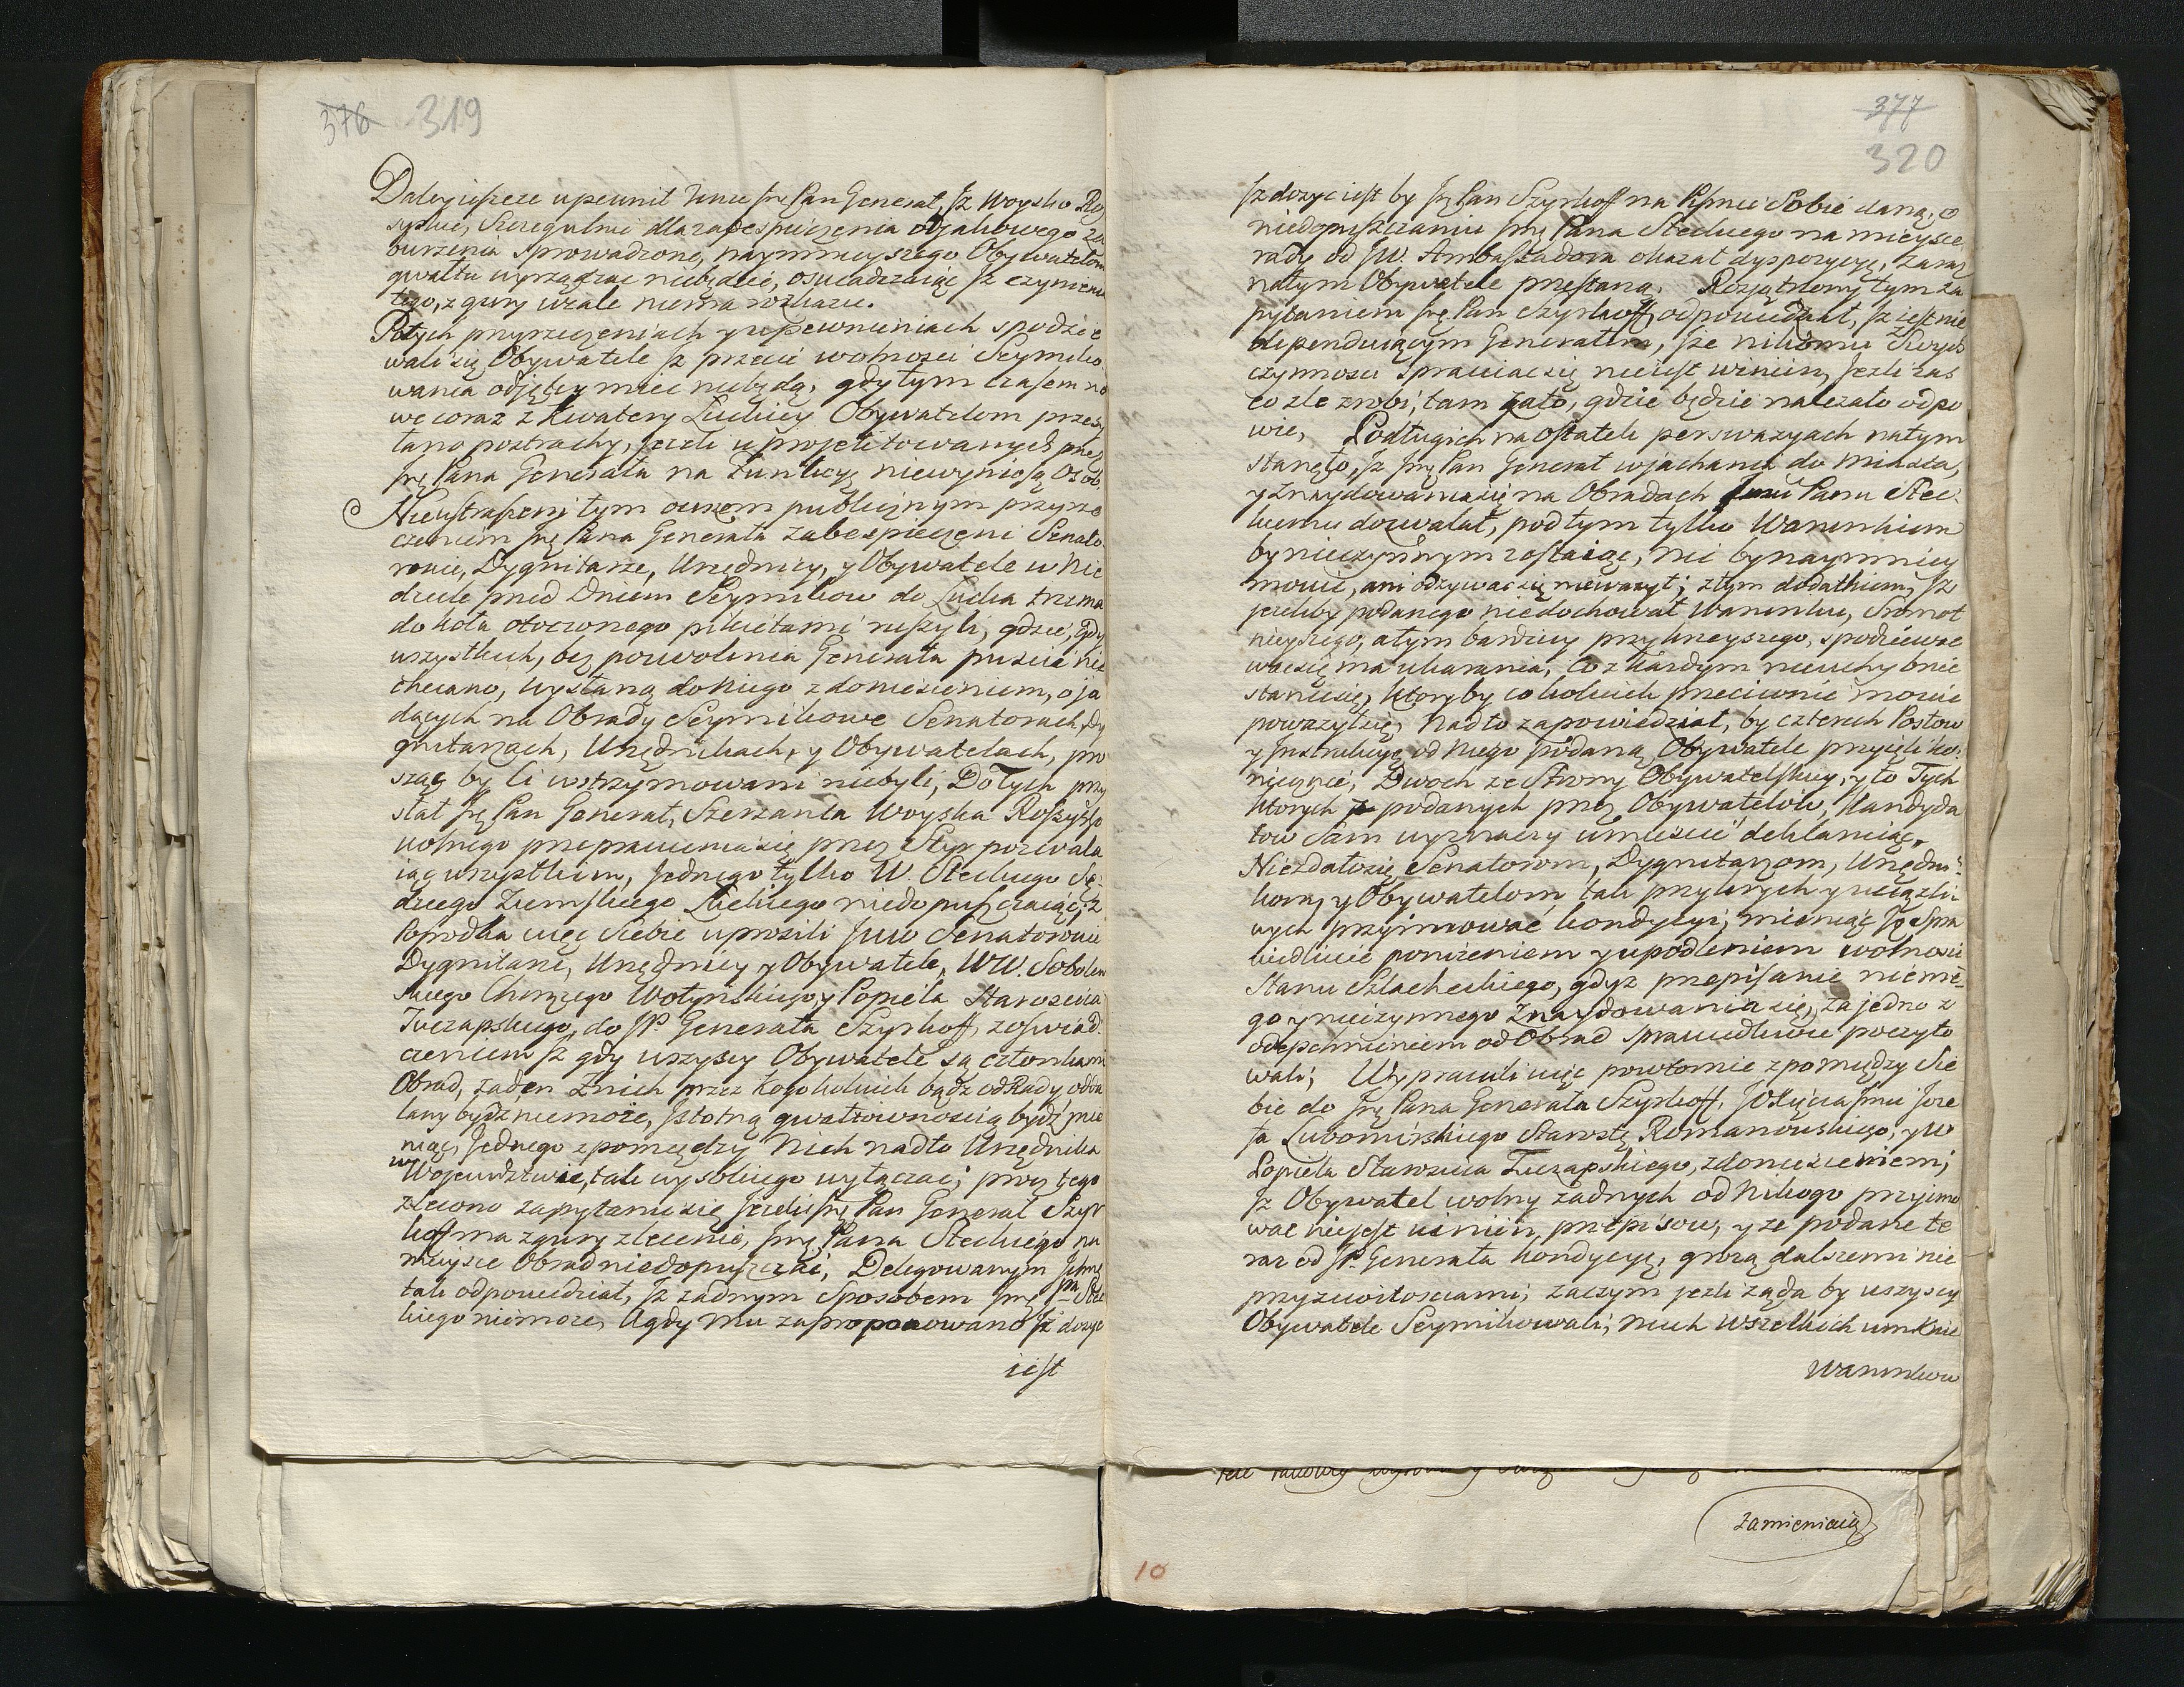 376 319
Daley ieszcze upewnił Imć Pan Generał, Iż Woysko Ros
syiskie, Szczegulnie dla zabespieczenia od jakowego za
burzenia sprowadzone, naymnieyszego Obywatelom
gwałtu wyrządzac niebędzie, oswiadczaiąc Iż czynienia
tego, z gury wcale niema rozkazu.
Potych przyrzeczeniach y upewnieniach spodzie
wali się Obywatele Iż przecie wolnosci Seymiko
wania odjętey miec niebędą, gdy tym czasem no
we coraz z Kwatery Ludzicy Obywatelom przesy
łano postrachy, jezeli uprojektowanych przez
Imć Pana Generała na Funkcyę niewyniosą Osób.
Nieustraszeni tym owszem publicznym przyrze
czeniem Imć Pana Generała zabespieczeni Senato
rowie, Dygnitarze, Urzędnicy, y Obywatele w Nie
dziele przed Dniem Seymikow do Łucka trzema
do koła otoczonego pikietami ruszyli, gdzie, gdy
wszystkich, bez pozwolenia Generała puscic nie
chciano, Wysłaną do Niego z doniesieniem, o ja
dących na Obrady Seymikowe Senatorach, Dy
gnitarzach, Urzędnikach, y Obywatelach, pro
sząc by Ci wstrzymowani niebyli, Do Tych przy
słał Imć Pan Generał, Szerzanta Woyska Rossyisko
wolnego przeprawienia się przez Styr pozwala
iąc wszystkim, Jednego tylko W. Steckiego Sę
dziego Ziemskiego Łuckiego niedopuszczaiąc; z
Pośrodka więc Siebie uprosili JWW Senatorowie
Dygnitarze, Urzędnicy y Obywatele, WW. Sobolew
skiego Chorążego Wołyńskiego, y Popiela Starosciea
Tuczapskiego, do JP Generała Szyrkoff, z oswiad
czeniem Iż gdy wszyscy Obywatele są członkami
Obrad, zaden z Nich przez kogokolwiek bądz od Rady odda
lany bydz niemoże, Istotną gwałtownoscią bydz mie
niąc, Jednego z pomiędzy Nich nadto Urzędnika
w Wojewudztwie, tak wysokiego wyłączać; przez tego
zlecono zapytanie się jezeli Imć Pan Generał Szyr
koff ma z gury zlecenie, Imć Pana Steckiego na
mieysce Obrad niedopuszczać, Delegowanym Jchmć
tak odpowiedział, Iż zadnym Sposobem Imć Pa Stec
kiego niemoze, A gdy Mu zaproponowano Iż dosyc
iest
377
320
Iż dosyc iest by Imć Pan Szyrkoff na Pismie Sobie daną, o
niedopuszczaniu Imć Pana Steckiego na mieysce
rady od JW. Ambassadora okazał dyspozycyę, zaraz
na tym Obywatele przestaną. Rozjątrzony tym za
pytaniem Imć Pan Szyrkoff, odpowiedział, Iż iest nie
dependuiącym Generałem, Iże nikomu Swych
czynnosci sprawiac się nieiest winien, Jezli zas
co zle zrobi, tam zato, gdzie będzie nalezało odpo
wie, Podługich na ostatek perswazyach na tym
stanęło, Iż Imć Pan Generał wjachania do Miasta,
y znaydowania się na Obradach Jmci Panu Stec
kiemu dozwalał, pod tym tylko Warunkiem
by nieczynnym zostaiąc, nic bynaymniey
mowic, ani odzywac się niewazył; z tym dodatkiem, Iż
jezeliby podanego niedochował Warunku, Sromot
nieyszego, a tym bardziey przykrzeyszego, spodziewac
wac się ma ukarania, Co z kardym nieuchybnie
stanie się, ktoryby cokolwiek przeciwnie mowic
powazył się, Nadto zapowiedział, by czterech Posłow
y Instrukcyę od Niego podaną Obywatele przyięli ko
niecznie, Dwoch ze Strony Obywatelskiey, y to Tych
ktorych z podanych przez Obywatelów, Kandyda
tow Sam wyznaczy umiescic deklaruiąc,
Niezdało się Senatorom, Dygnitarzom, Urzędni
kom, y Obywatelom, tak przykrych y uciązli
wych przyimować kondycyi; mieniąc Iż Spra
wiedliwie ponizeniem y upodleniem wolnosci
Stanu Szlacheckiego, gdyz przepisanie nieme
go y nieczynnego znaydowania się, za jedno z
odepchnieniem od Obrad sprawiedliwie poczyto
wali; Wyprawili więc powtornie z pomiędzy Sie
bie do Imć Pana Generała Szyrkoff, JO Xięcia Jmci Joze
fa Lubomirskiego Starostę Romanowskiego, y W
Popiela Starosciea Tuczapskiego, z doniesieniem;
Iż Obywatel wolny zadnych od Nikogo przyimo
wac niejest winien, przepisow, y ze podane te
raz od JP. Generała kondycye, grożą dalszemi nie
przyzwoitosciami; zaczym jezli ząda by wszyscy
Obywatele Seymikowali; niech wszelkich umknie
Warunkow
Zamieniaią
10